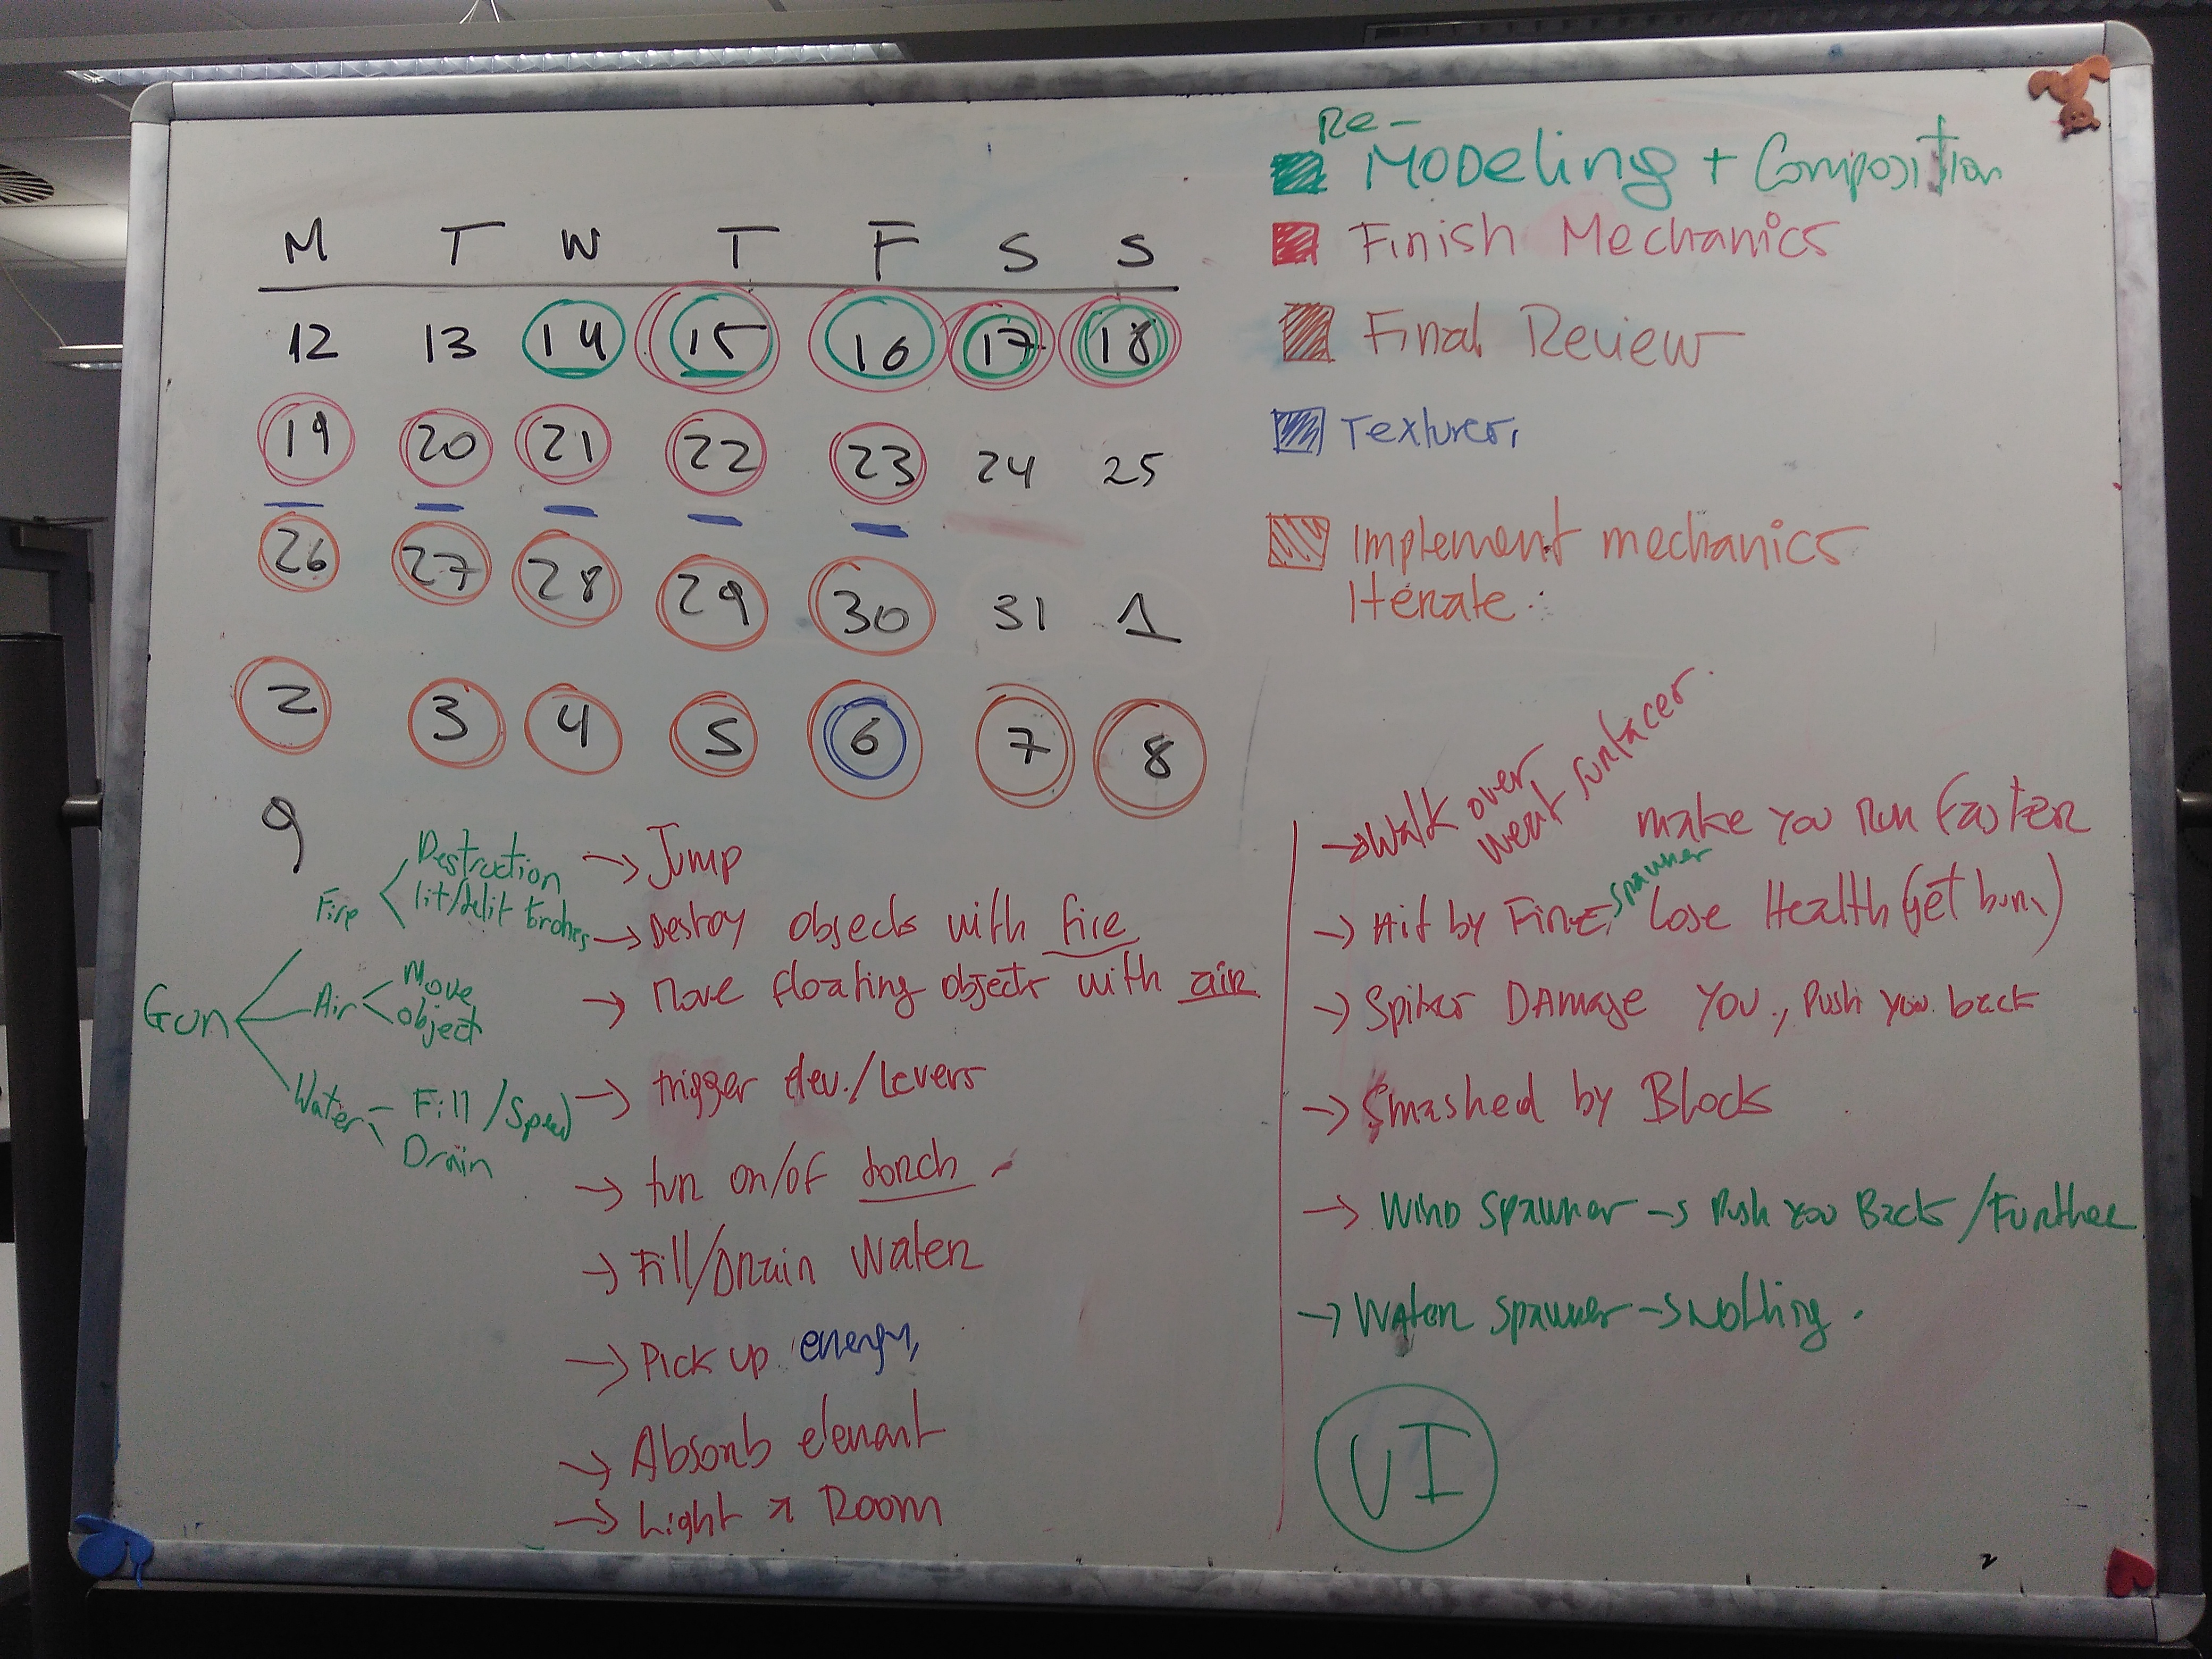 M T W T F S S
12 13 14 15 16 17 18
19 20 21 22 23 24 25
26 27 28 29 30 31 1
2 3 4 5 6 7 8
9
Re-
Modeling + Composition
Finish Mechanics
Final Review
Textures
Implement mechanics
Iterate
Gun
Fire
Destruction
lit/delit torches
Air
Move
object
Water
Fill/Speed
Drain
→ Jump
→ Destroy objects with fire
→ Move floating objects with air
→ trigger elev./Levers
→ turn on/of torch
→ Fill/Drain Water
→ Pick up energy
→ Absorb elemant
→ Light a Room
→ Walk over
weat surfaces.
make you run faster
→ Hit by Fire spawner, Lose Health (get burn)
→ Spikes DAMAGE YOU, Push you back
→ Smashed by Block
→ Wind spawner → Push you Back/Further
→ Water spawner → Nothing.
UI